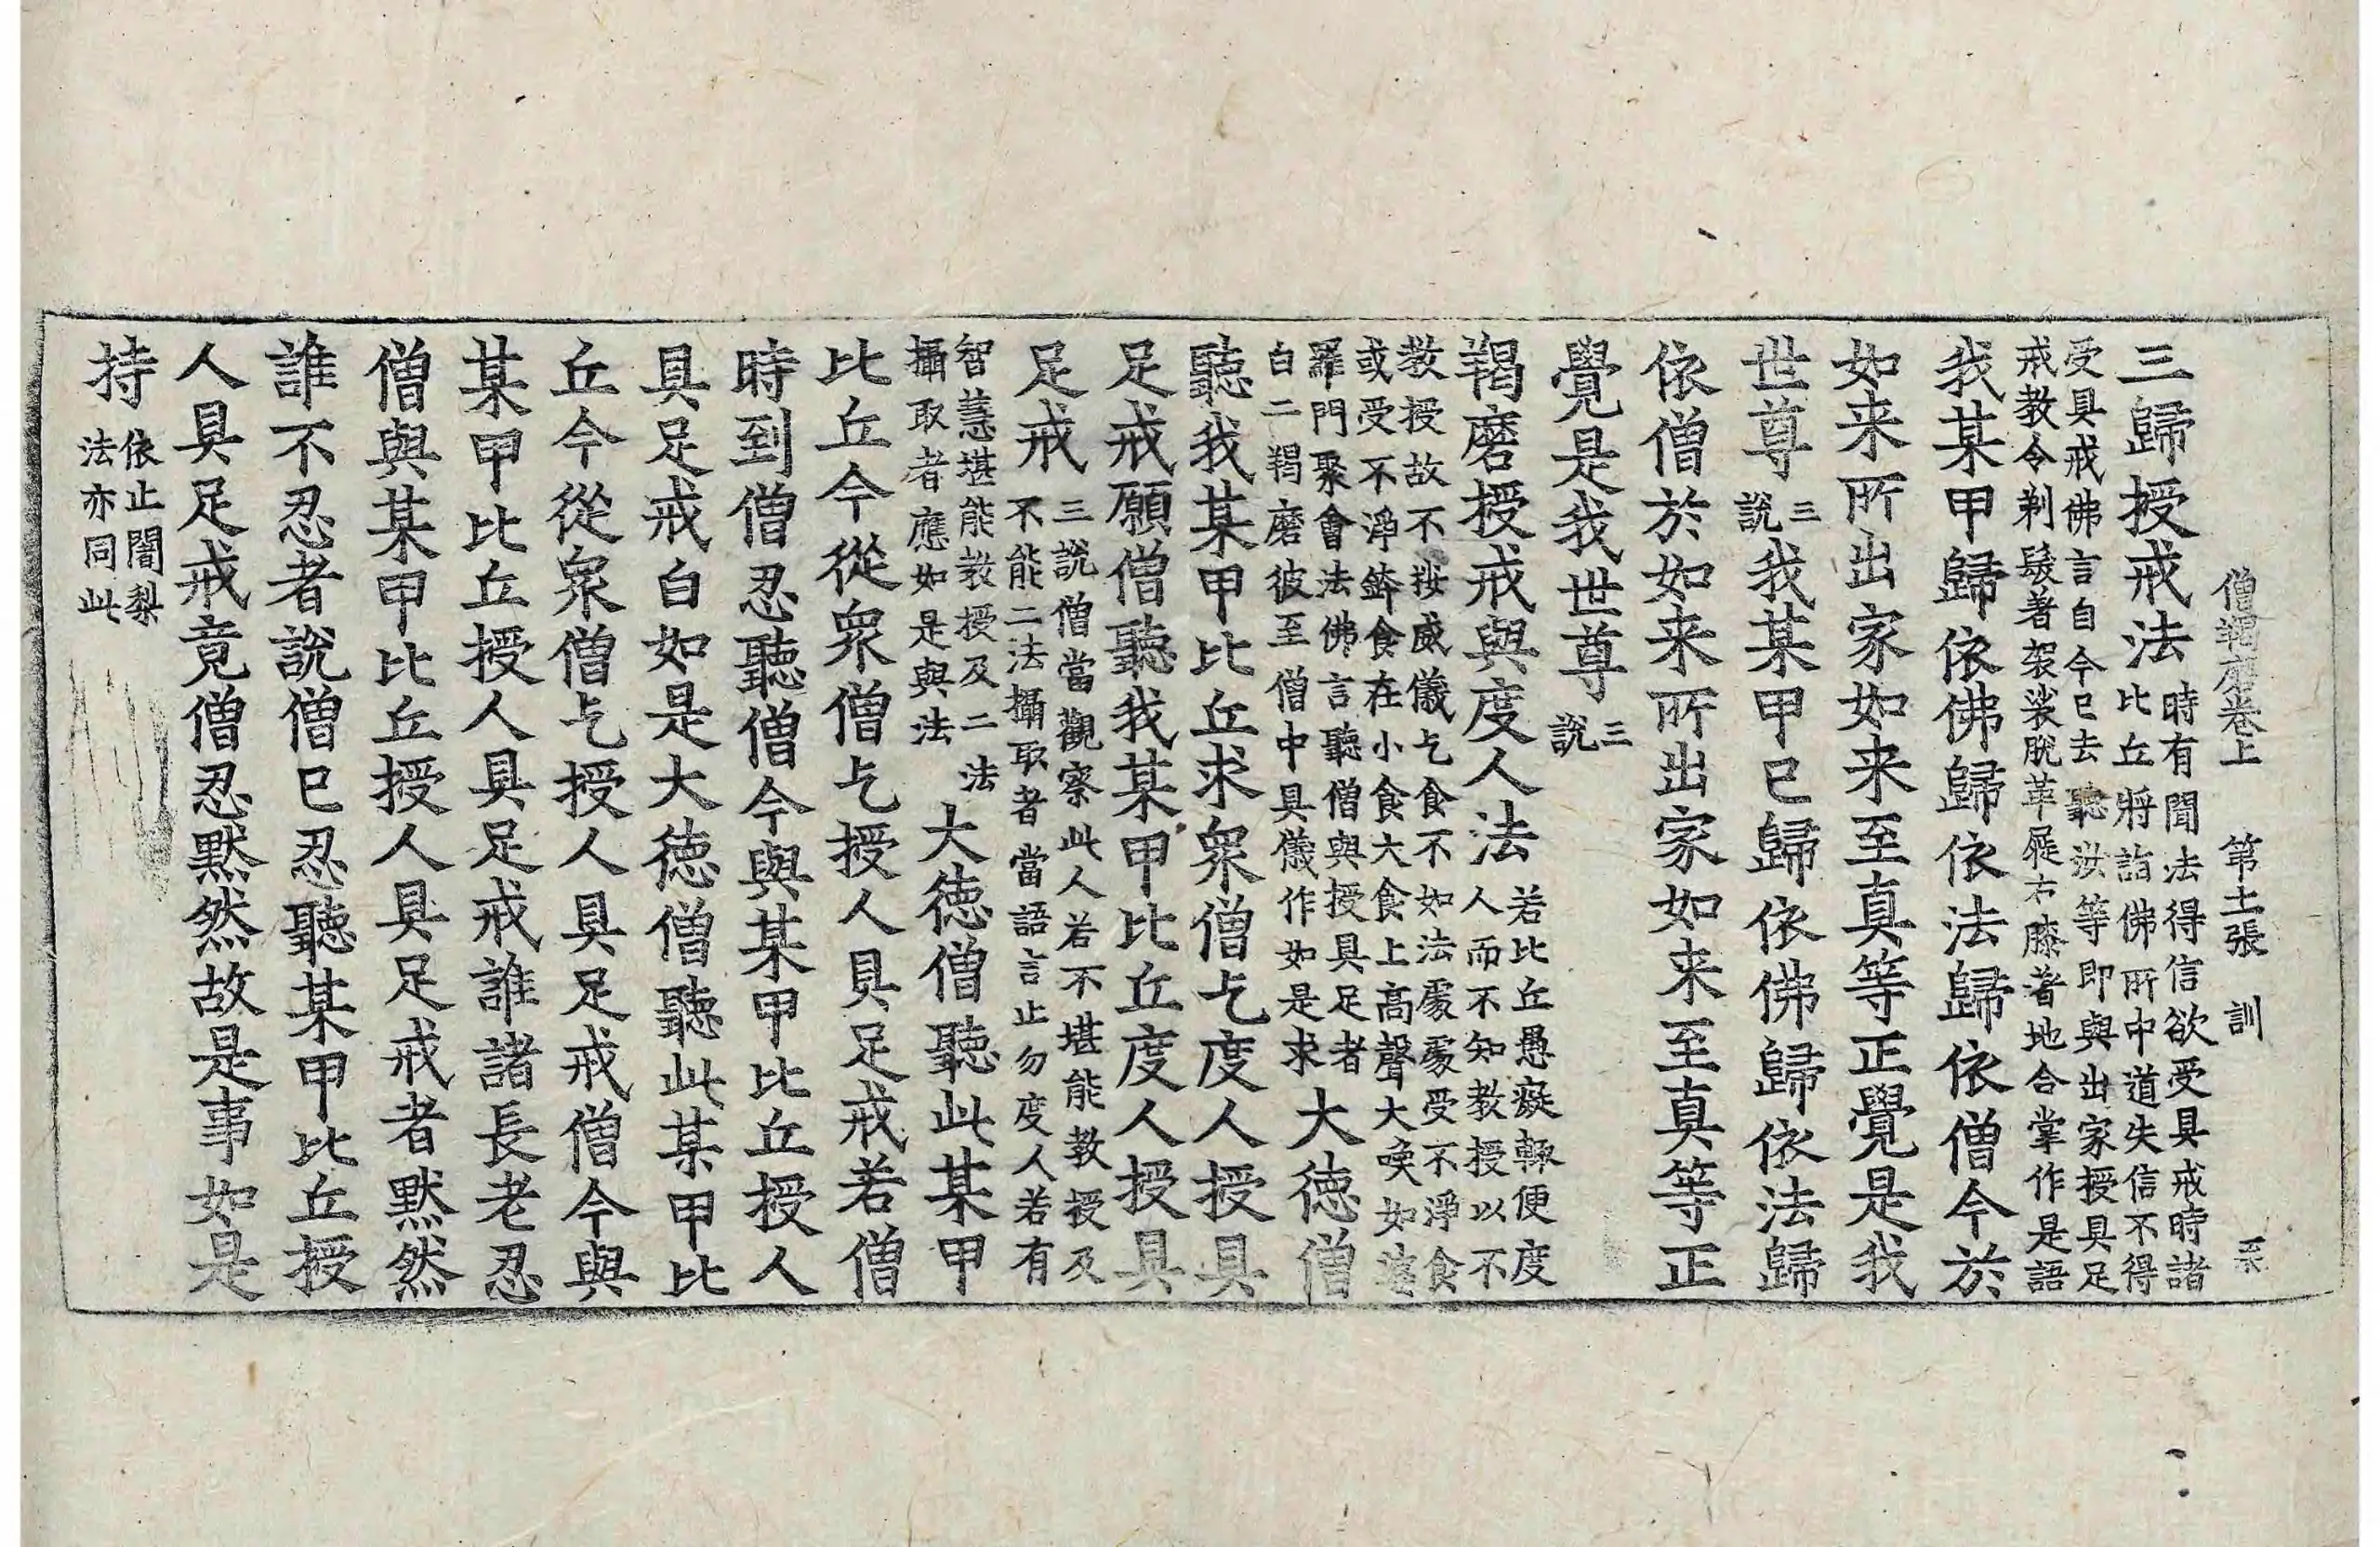 僧羯磨卷上　第十二張　訓
三歸授戒法時有聞法得信欲受具戒時諸
比丘將詣佛所中道失信不得
受具戒佛言自今已去聽汝等即與出家授具足
戒教令剃髮著袈裟脫革屣右膝著地合掌作是語
我某甲歸依佛歸依法歸依僧今於
如来所出家如来至真等正覺是我
世尊三說我某甲已歸依佛歸依法歸
依僧於如来所出家如来至真等正
覺是我世尊三說
羯磨授戒與度人法若比丘愚癡輙便度
人而不知教授以不
教授故不按威儀乞食不如法處處受不淨食
或受不淨鉢食在小食大食上高聲大喚如婆
羅門聚會法佛言聽僧與授具足者
白二羯磨彼至僧中具儀作如是求大徳僧
聽我某甲比丘求衆僧乞度人授具
足戒願僧聽我某甲比丘度人授具
足戒三說僧當觀察此人若不堪能教授及
不能二法攝取者當語言止勿度人若有
智慧堪能教授及二法
攝取者應如是與法大徳僧聽此某甲
比丘今從衆僧乞授人具足戒若僧
時到僧忍聽僧今與某甲比丘授人
具足戒白如是大徳僧聽此某甲比
丘今從衆僧乞授人具足戒僧今與
某甲比丘授人具足戒誰諸長老忍
僧與某甲比丘授人具足戒者默然
誰不忍者說僧已忍聽某甲比丘授
人具足戒竟僧忍默然故是事如是
持依止闍梨
法亦同此